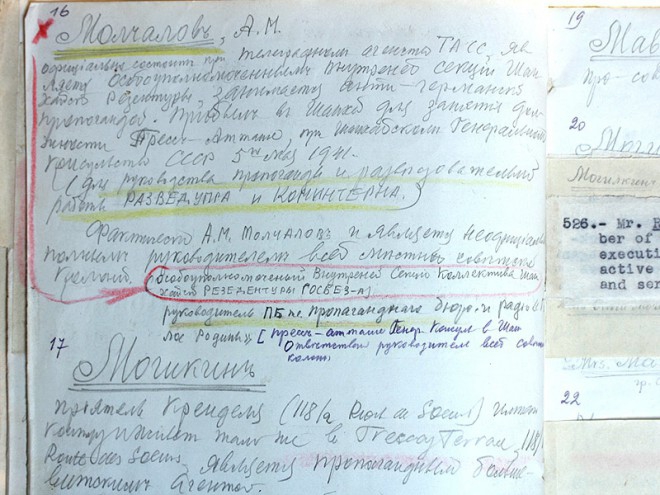 16
Молчаловъ, А.М.
официально состоитъ при телеграфномъ агентстве ТАСС, яв
ляется Особоуполномоченнымъ Внутренней Секции Шан
хайской Резидентуры, занимается анти-германской
пропагандой. Прибылъ в Шанхай для занятия дол
жности Пресс-Атташе, при Шанхайскомъ Генеральномъ
Консульстве СССР 5го Мая 1941.
(для руководства пропаганды и разведовательной
работы РАЗВЕДУПРА и КОМИНТЕРНА.)
Фактически А.М. Молчаловъ и является неофициаль
нымъ руководителемъ всей местной советской
Особоуполномоченный Внутренней Секции Коллектива Шан
хайской РЕЗЕДЕНТУРЫ ГОСБЕЗ-А
руководитель пропаганднаго бюро и радио "Го
лос Родины" [пресс-атташе Генер. Консул в Шан
Ответственный руководитель всей совет
колонии
17
Могикинъ
приятель Кренделя (118/а Route de Soeurs)
контру живет тамъ же в Trescoy Terrace, 118/
Route des Soeurs, является пропаганднымъ больше
витскимъ агентомъ.
19
Мав
про-сов
20
Могилкинъ
526.- Mr.
ber of
executi
active
and ser
Mrs. Ma
22